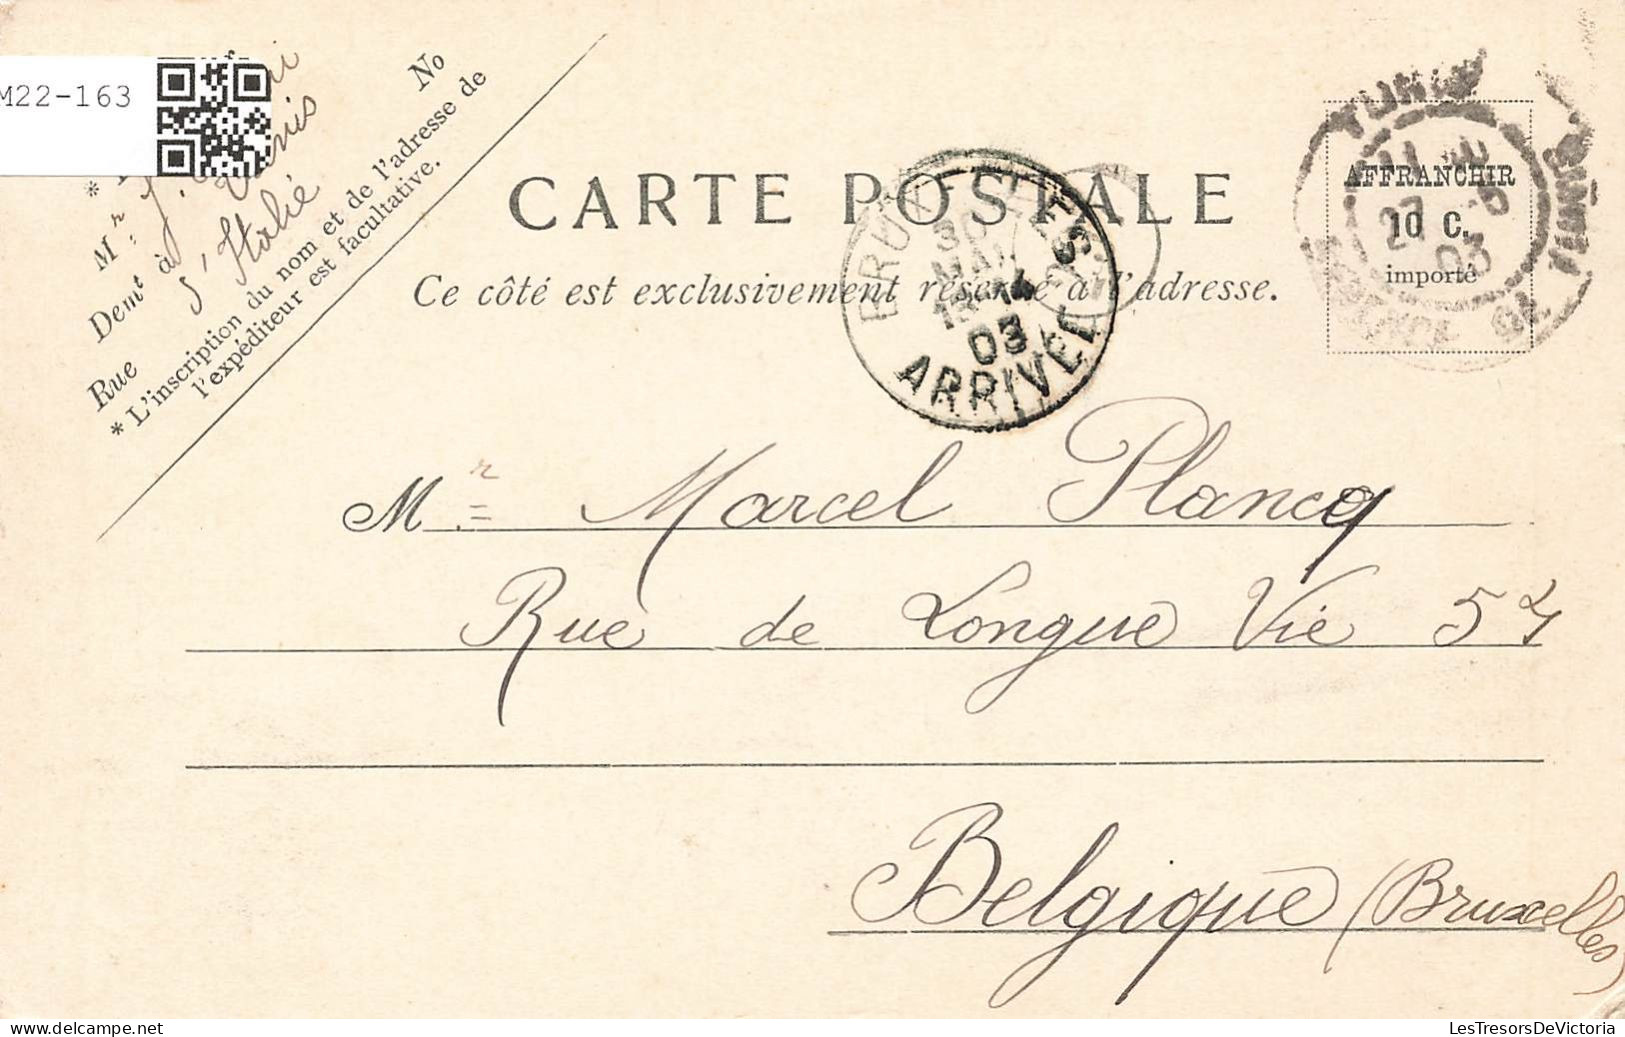 M22-163
No
Mr
Demt à Tunis
Rue d'Italie
* L'inscription du nom et de l'adresse de
l'expéditeur est facultative.
CARTE POSTALE
Ce côté est exclusivement réservé à l'adresse.
BRUXELLES
30
MAI
13-14
03
ARRIVÉE
TUNIS
27
03
AFFRANCHIR
10 C.
importé
Mr Marcel Plancq
Rue de Longue Vie 57
Belgique (Bruxelles)
LesTresorsDeVictoria